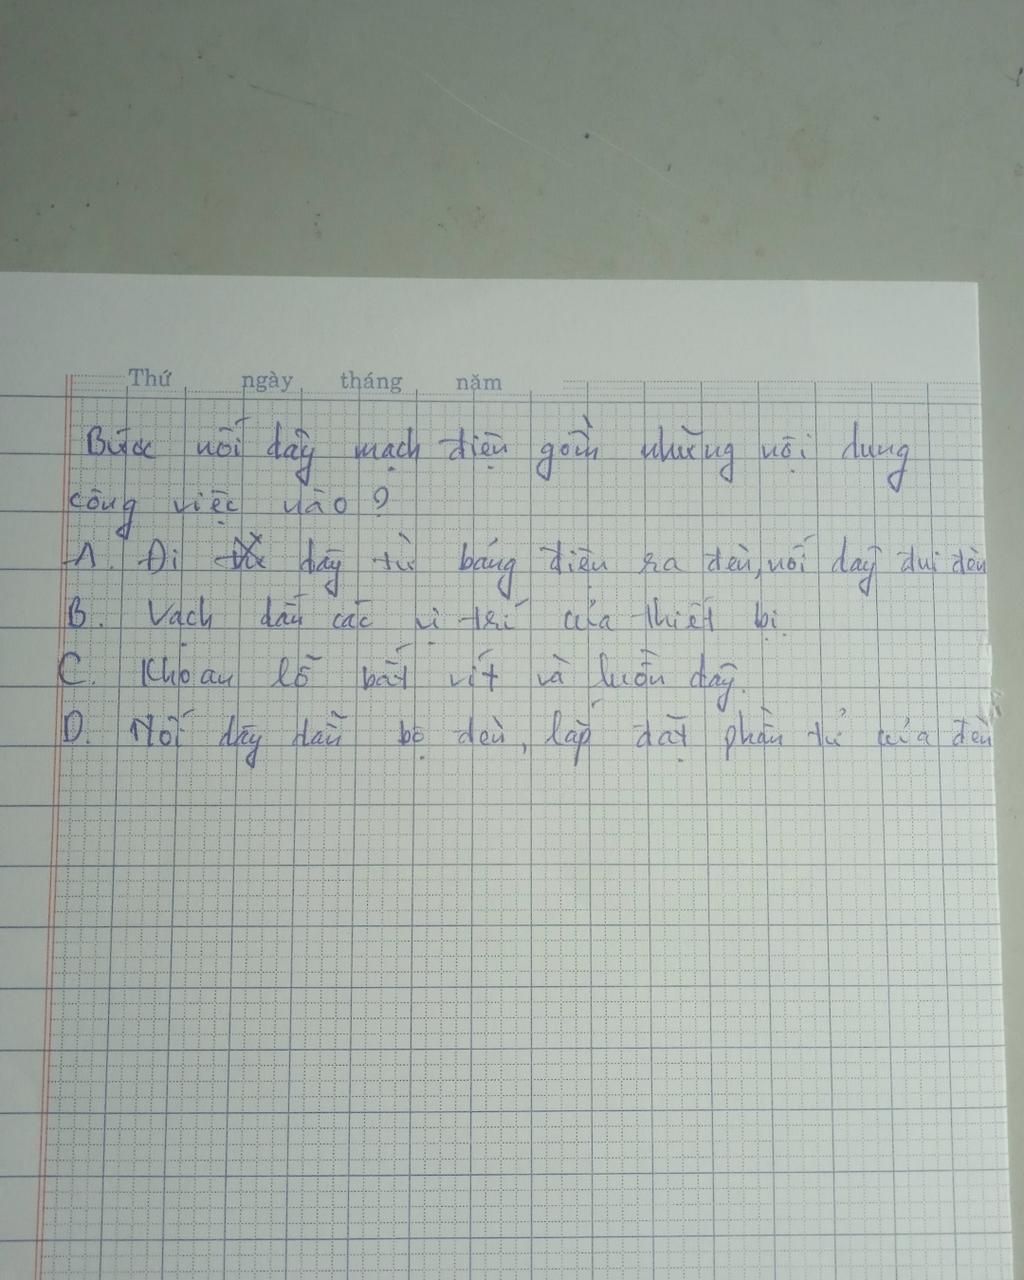 Thứ ngày tháng năm
Bước nối dây mạch điện gồm những nội dung
công việc nào ?
A. Đi dây từ bảng điện ra đèn, nối dây đui đèn
B. Vạch dấu các vị trí của thiết bị
C. Khoan lỗ bắt vít và luồn dây.
D. Nối dây dẫn bộ đèn, lắp đặt phần tử của đèn